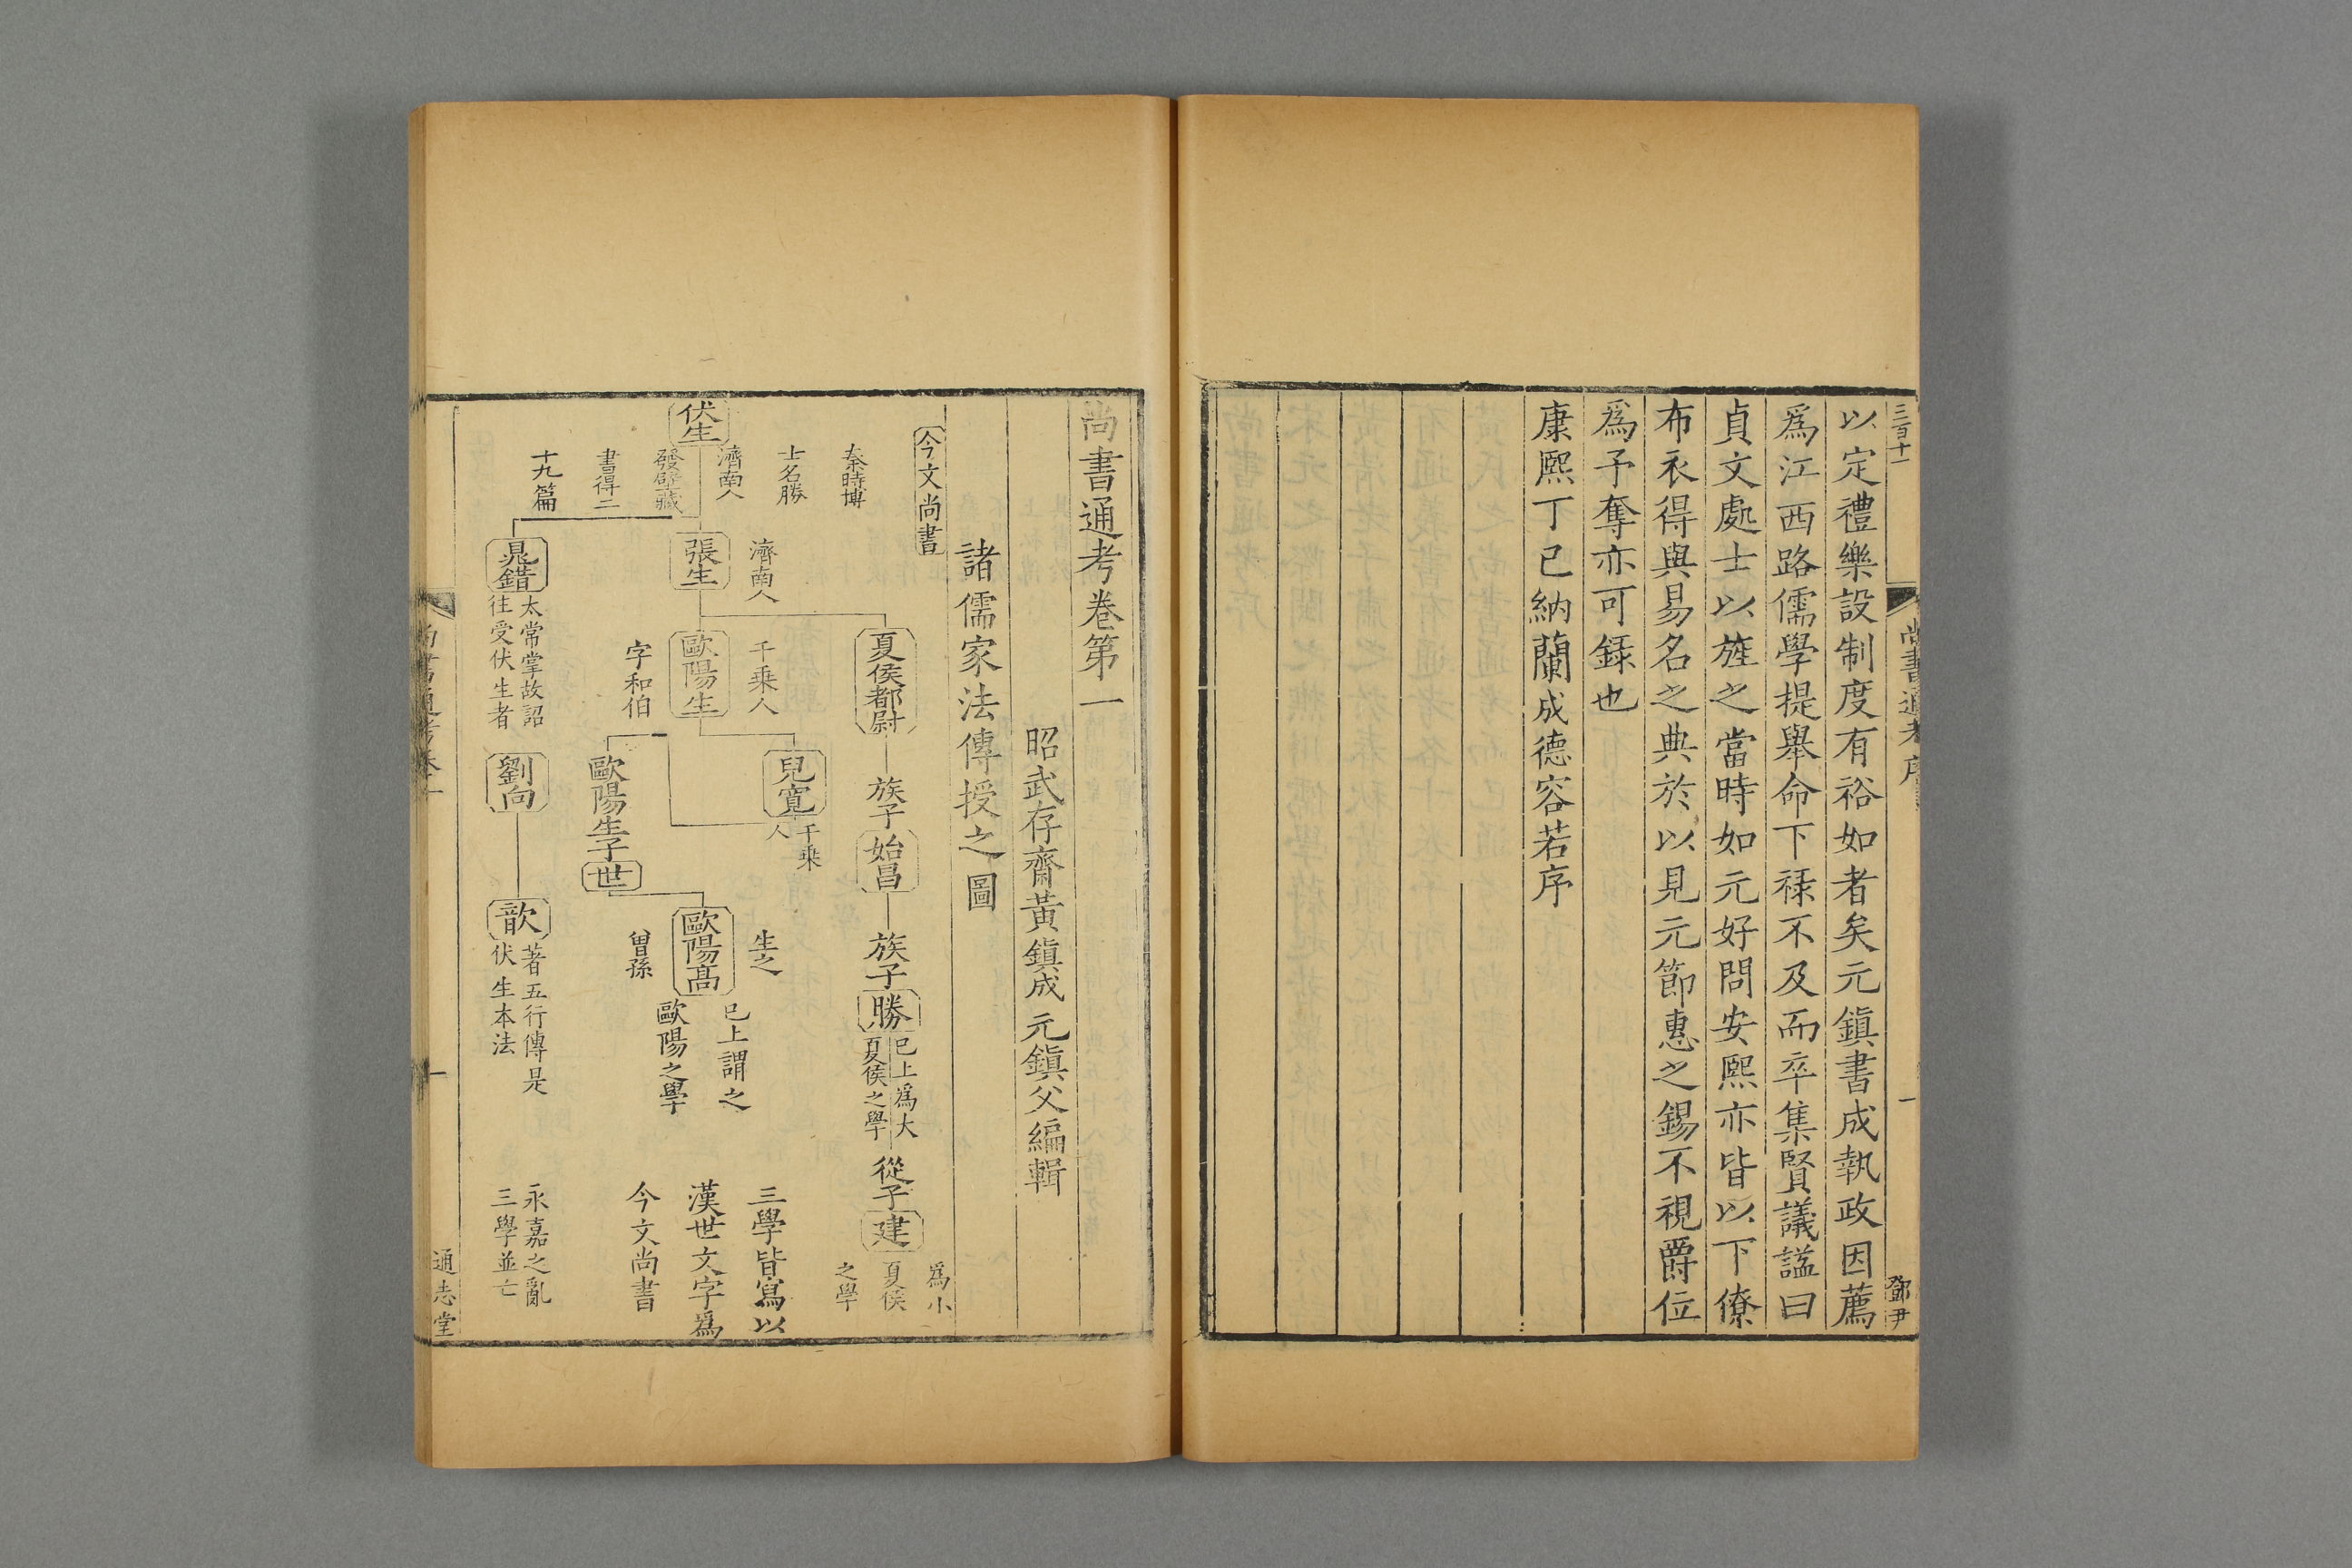 三百十一
尚書通考序
一
鄧尹
以定禮樂設制度有裕如者矣元鎮書成執政因薦
爲江西路儒學提舉命下祿不及而卒集賢議諡曰
貞文處士以旌之當時如元好問安熙亦皆以下僚
布衣得與易名之典於以見元節惠之錫不視爵位
爲予奪亦可録也
康熙丁巳納蘭成德容若序
尚書通考卷第一
昭武存齋黃鎮成元鎮父編輯
諸儒家法傳授之圖
今文尚書
伏生
秦時博
士名勝
濟南人
發壁藏
書得二
十九篇
張生
濟南人
夏侯都尉
族子始昌
族子勝
已上爲大
夏侯之學
從子建
爲小
夏侯
之學
歐陽生
千乗人
字和伯
兒寬
千乗
人
歐陽生子世
歐陽高
生之
曾孫
已上謂之
歐陽之學
三學皆寫以
漢世文字爲
今文尚書
晁錯
太常掌故詔
往受伏生者
劉向
歆
著五行傳是
伏生本法
永嘉之亂
三學並亡
尚書通考卷一
一
通志堂